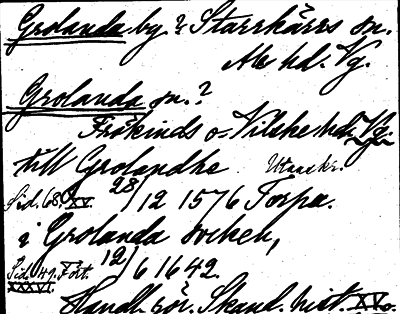 Grolanda by i Starrkärrs sn.
Ale hd. Vg.
Grolanda sn.?
Frökinds o Vilske hd. Vg.
till Grolandhe Utanskr.
Sid. 68. XV. 28/12 1576 Torpa.
i Grolanda sochen,
Sid. 49. Fört. XXXVI. 12/6 1642.
Handl. rör. Skand. hist. XVo.